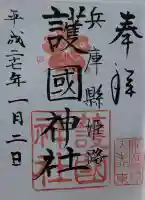 奉拝
兵庫縣姫路
護國神社
平成二七年一月二日